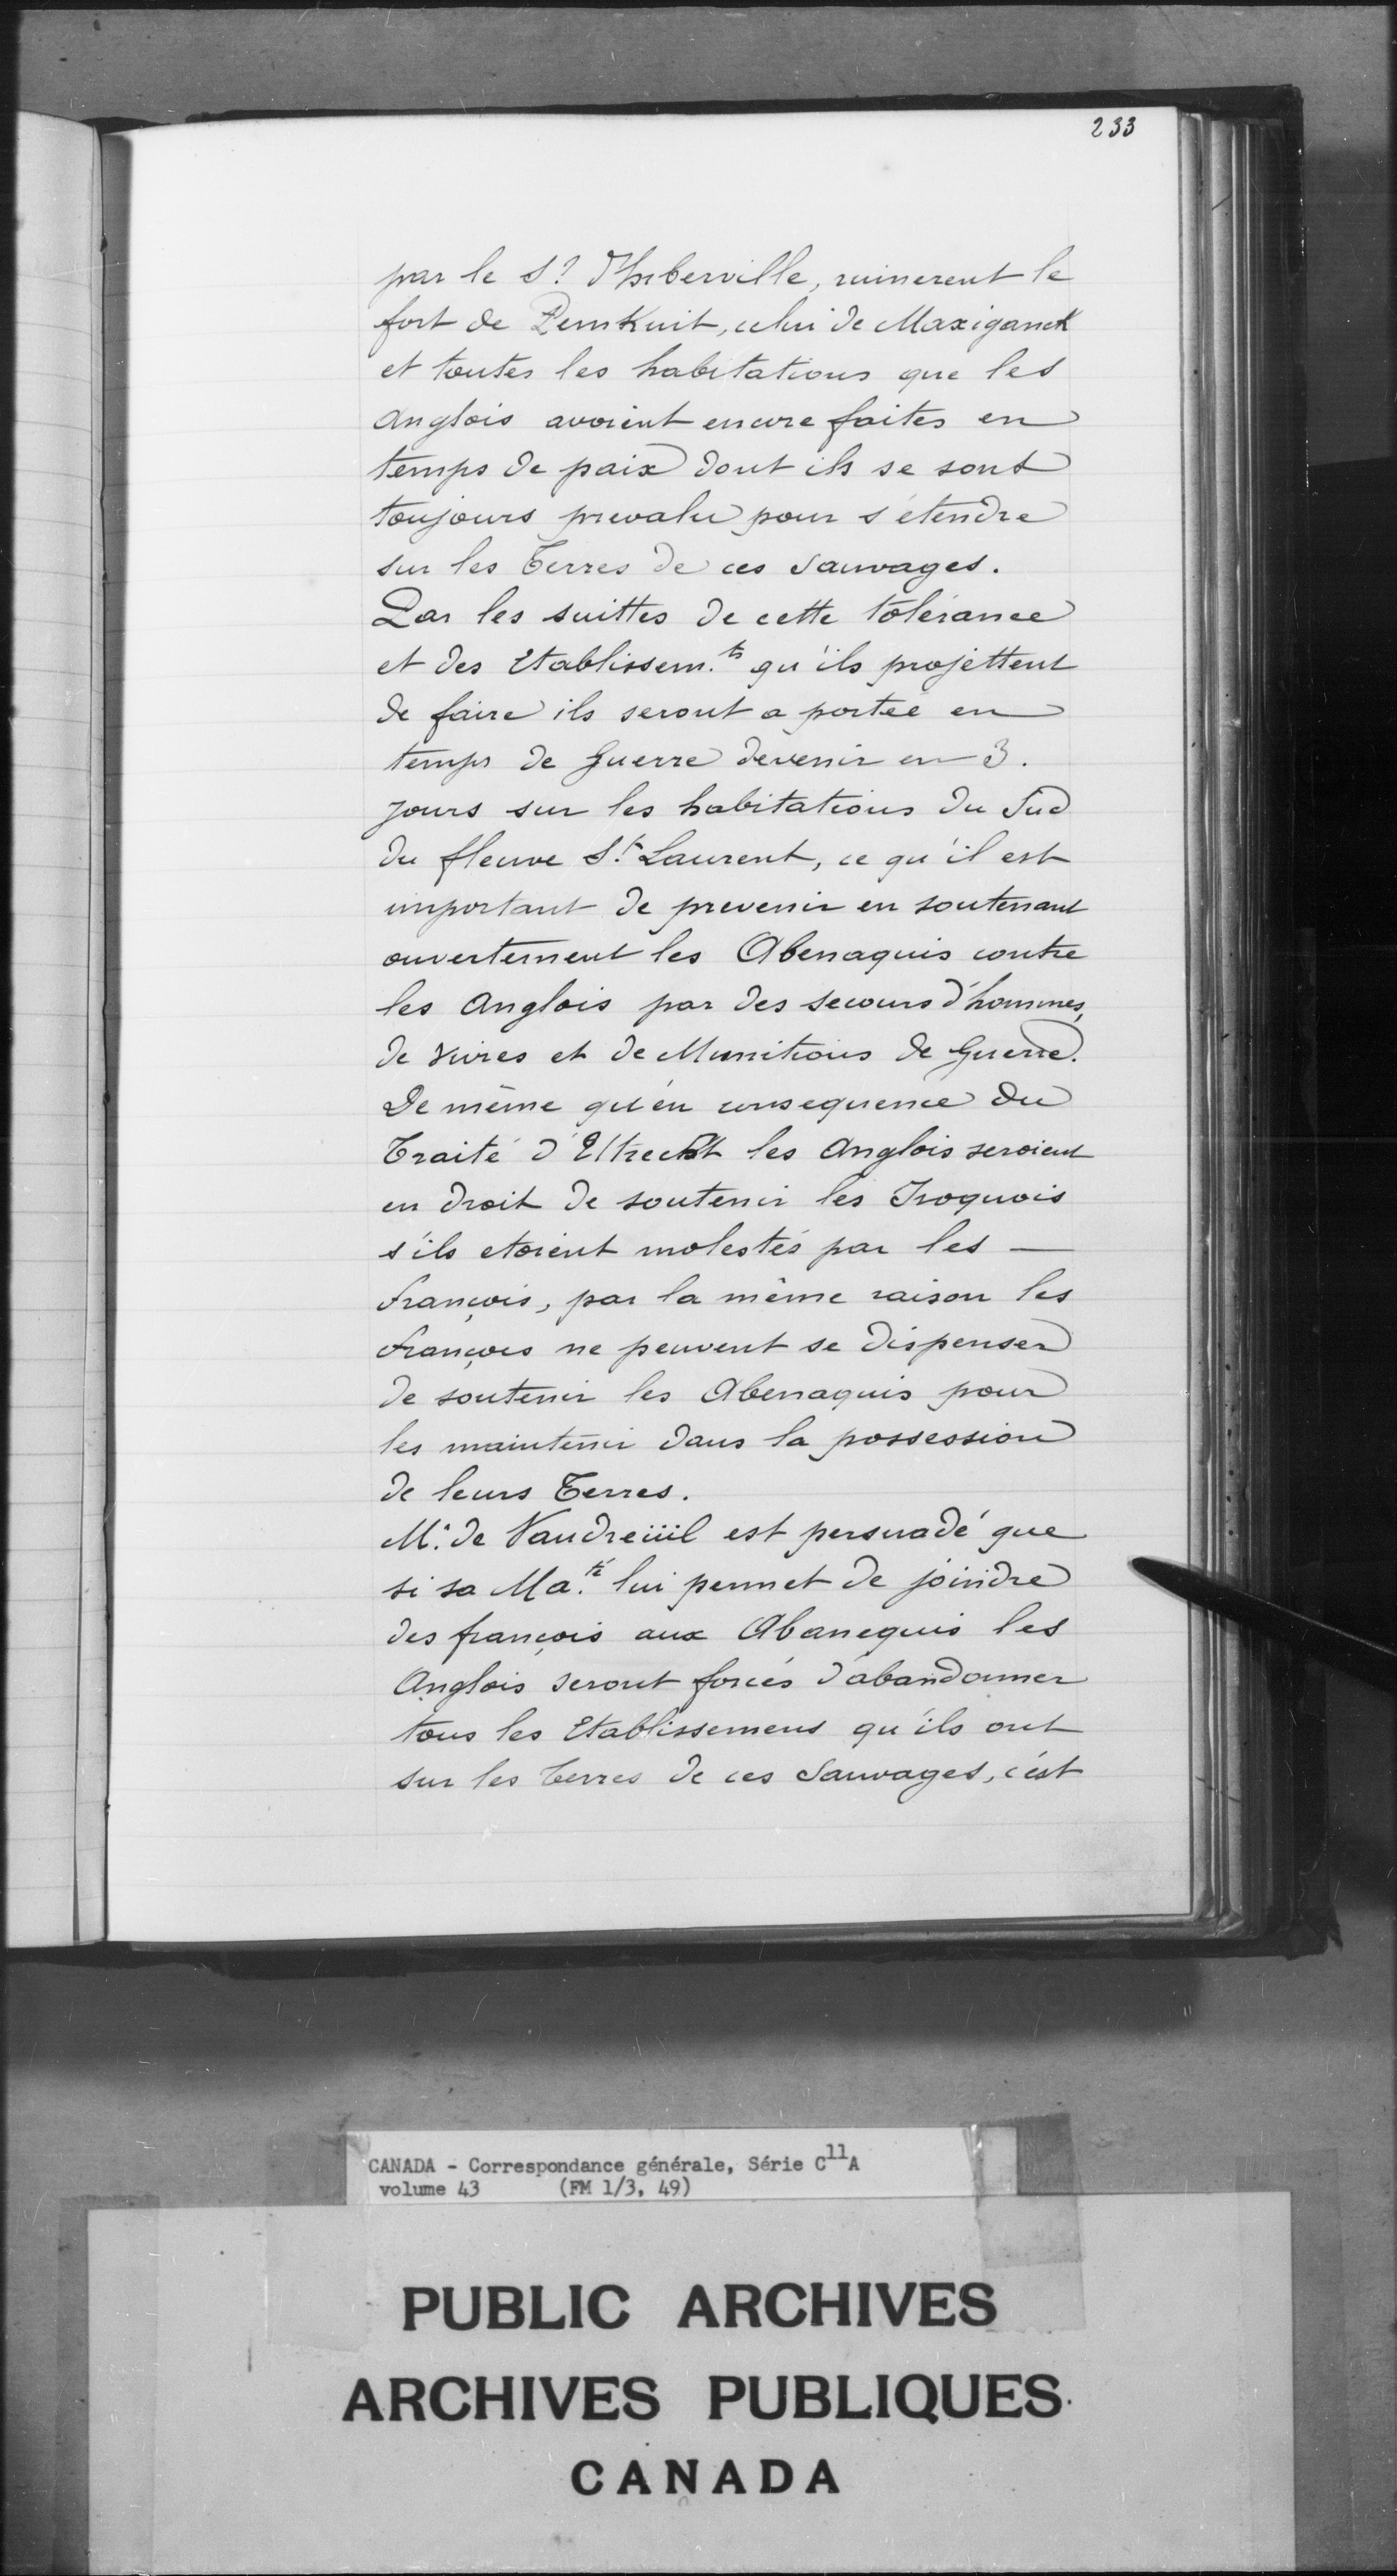 233
par le S.r d'hiberville, ruinerent le
fort de Pemkuit, celui de Maxiganek
et toutes les habitations que les
anglois avoient encore faites en
temps de paix dont ils se sont
toujours prevalu pour s'étendre
sur les Terres de ces sauvages.
Par les suittes de cette tolérance
et des Etablissem.ts qu'ils projettent
de faire ils seront a portée en
temps de guerre devenir en 3.
jours sur les habitations du Sud
du fleuve S.t Laurent, ce qu'il est
important de prevenir en soutenant
ouvertement les Abenaquis contre
les anglois par des secours d'hommes,
de vivres et de Munitions de Guerre.
De même qu'en consequence du
Traité d'Utrecht les anglois seroient
en droit de soutenir les Iroquois
s'ils etoient molestés par les —
françois, par la même raison les
françois ne peuvent se dispenser
de soutenir les Abenaquis pour
les maintenir dans la possession
de leurs Terres.
M.r de Vaudreüil est persuadé que
si sa Ma.té lui permet de joindre
des françois aux Abanequis les
Anglois seront forcés d'abandonner
tous les Etablissemens qu'ils ont
sur les terres de ces Sauvages, c'est
CANADA - Correspondance générale, Série C11A
volume 43 (FM 1/3, 49)
PUBLIC ARCHIVES
ARCHIVES PUBLIQUES
CANADA